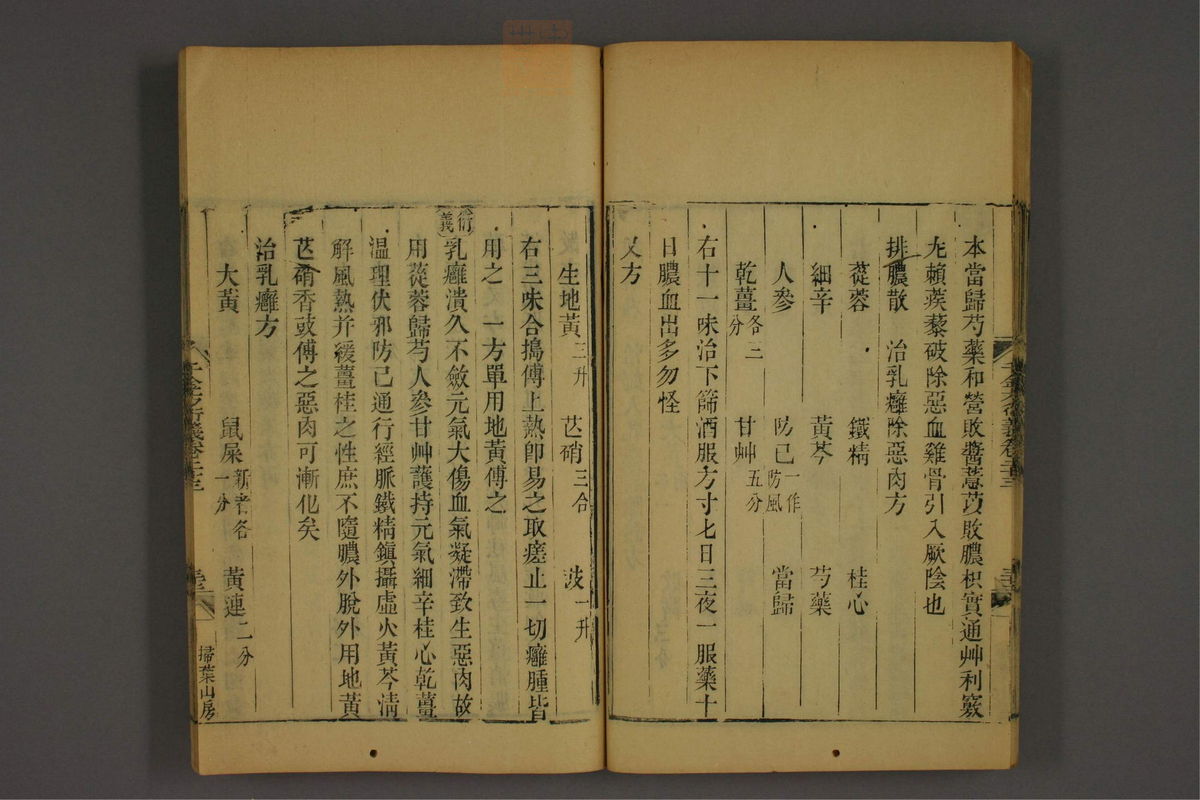 本當歸芍藥和營敗醬薏苡敗膿枳實通艸利竅
尤賴蒺藜破除惡血雞骨引入厥陰也
排膿散 治乳癰除惡肉方
蓯蓉 鐵精 桂心
細辛 黃芩 芍藥
人參 防己一作防風 當歸
乾薑各三分 甘艸五分
右十一味治下篩酒服方寸匕日三夜一服藥十
日膿血出多勿怪
又方
生地黃三升 芒硝三合 豉一升
右三味合搗傅上熱即易之取瘥止一切癰腫皆
用之 一方單用地黃傅之
衍義
乳癰潰久不斂元氣大傷血氣凝滯致生惡肉故
用蓯蓉歸芍人參甘艸護持元氣細辛桂心乾薑
温理伏邪防己通行經脈鐵精鎮攝虛火黃芩淸
解風熱并緩薑桂之性庶不隨膿外脫外用地黃
芒硝香豉傅之惡肉可漸化矣
治乳癰方
大黃 鼠屎新者各一分 黃連二分
掃葉山房